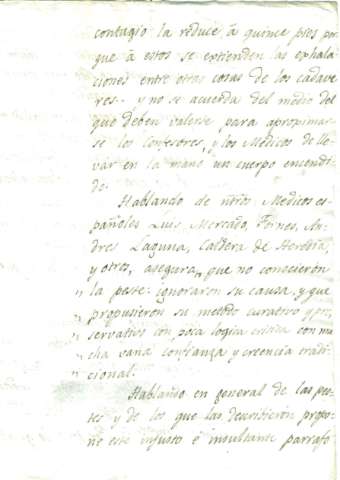 contagio la reduce á quince pies por
que á estos se extienden las exhala
ciones entre otras cosas de los cadave
res. y no se acuerda del medio del
que deben valerse para aproximar
se los Confesores, y los Medicos de lle
var en la mano un cuerpo encendi
do.
Hablando de ntros Medicos es
pañoles Luis Mercado, Fornes, An
dres Laguna, Caldera de Heredia,
y otros, asegura, que no conocieron
" la peste: ignoraron su causa, y que
" propusieron su metodo curativo y pre
" servativo con poca logica critica con mu
" cha vana confianza y creencia tradi
" cional.
Hablando en general de las pes
tes y de los que las describieron propo
ne este injusto é insultante parrafo